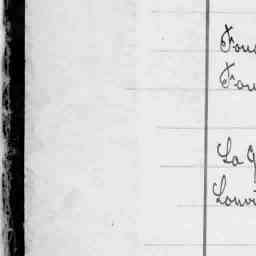 Fou
Fou
La G
Louvi